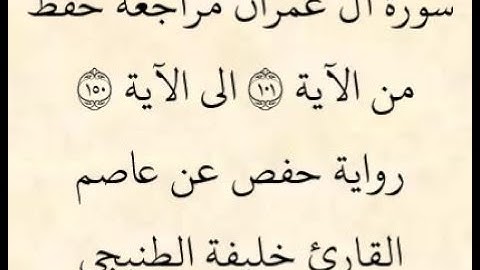 سورة آل عمران مراجعة حفظ
من الآية ١٠١ الى الآية ١٥٠
رواية حفص عن عاصم
القارئ خليفة الطنيجي